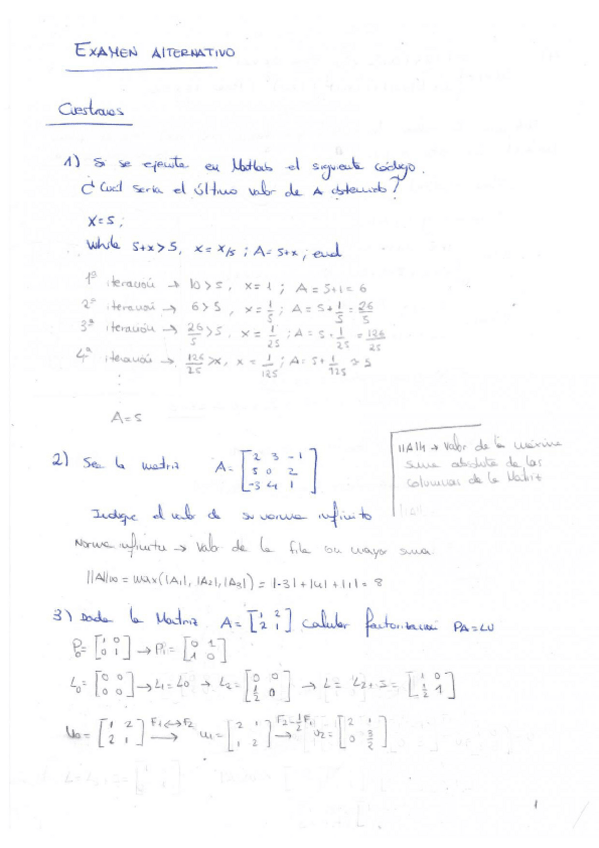 EXAMEN ALTERNATIVO
Cuestiones
1) Si se ejecuta en Matlab el siguiente código.
¿Cuál sería el último valor de A obtenido?
X=5;
While 5+x>5, x=x/5; A=5+x; end
1ª iteración → 10>5, x=1; A=5+1=6
2ª iteración → 6>5, x=1/5; A=5+1/5=26/5
3ª iteración → 26/5>5, x=1/25; A=5+1/25=126/25
4ª iteración → 126/25>x, x=1/125; A=5+1/125>5
⋮
A=5
2) Sea la matriz A=[2 3 -1
5 0 2
-3 4 1]
||A||1 → Valor de la máxima
suma absoluta de las
columnas de la Matriz
Indique el valor de su norma infinito
Norma infinito → Valor de la fila con mayor suma
||A||∞ = max(|A1|, |A2|, |A3|) = |-3|+|4|+|1| = 8
3) Dada la Matriz A=[1 2
2 1] calcular factorización PA=LU
P0=[1 0
0 1] → P1=[0 1
1 0]
L0=[0 0
0 0] → L1=L0 → L2=[0 0
1/2 0] → L= L2+I=[1 0
1/2 1]
U0=[1 2
2 1] F1↔F2 → U1=[2 1
1 2] F2-1/2F1 → U2=[2 1
0 3/2]
1